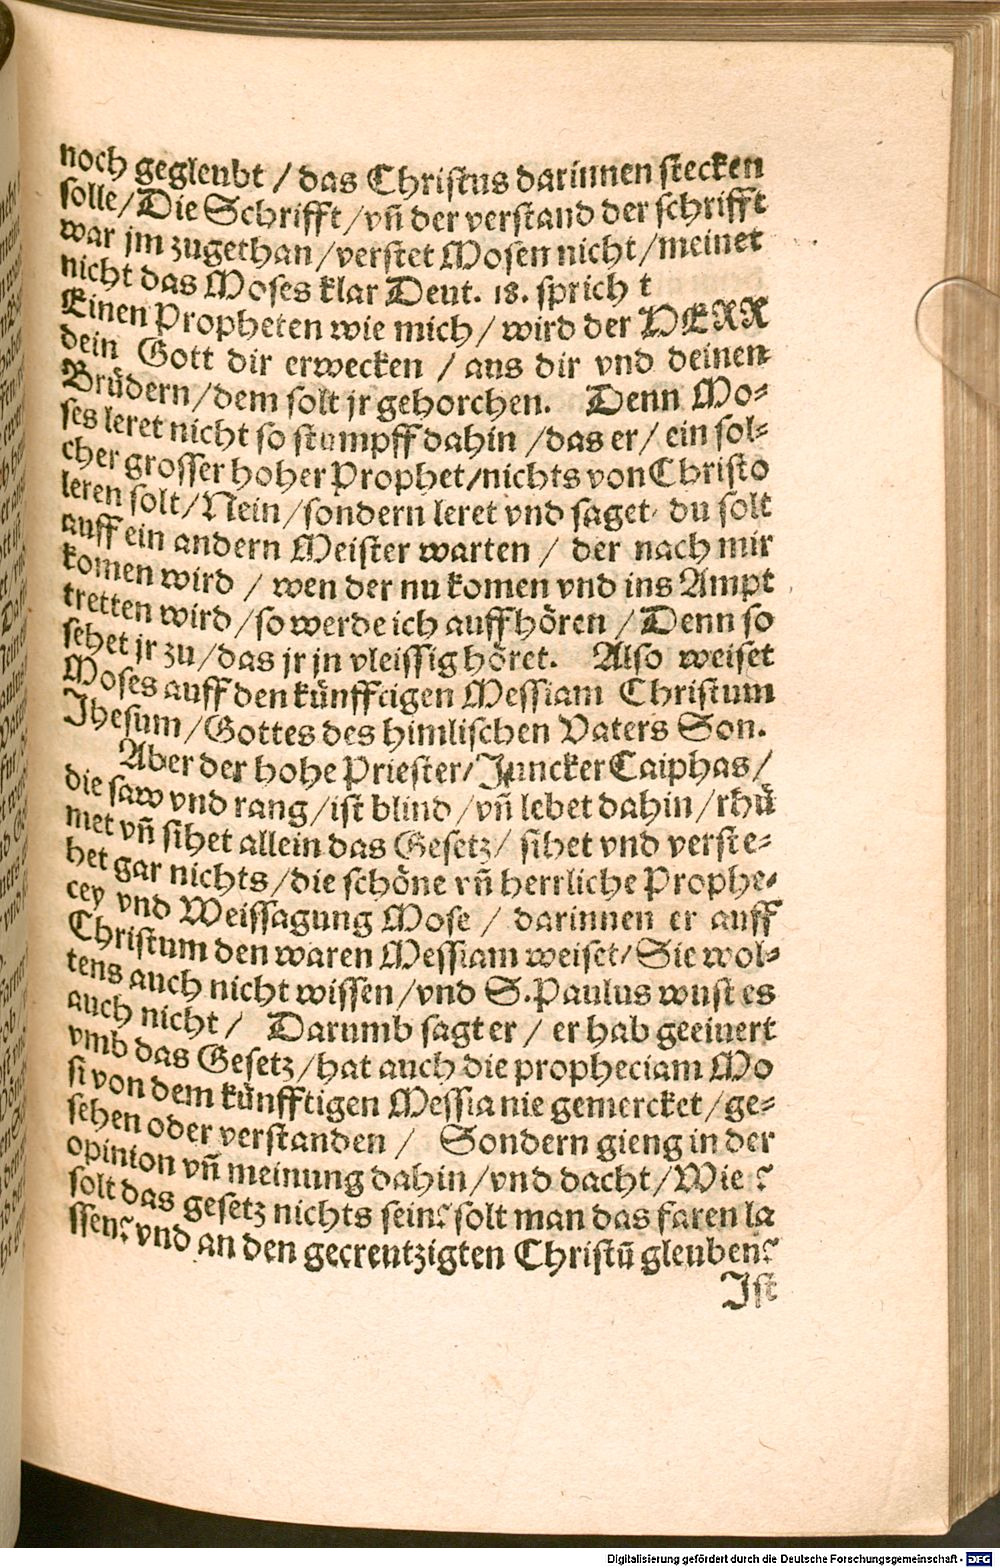 noch gegleubt / das Christus darinnen stecken
solle / Die Schrifft / vñ der verstand der schrifft
war jm zugethan / verstet Mosen nicht / meinet
nicht das Moses klar Deut. 18. sprich t
Einen Propheten wie mich / wird der HERR
dein Gott dir erwecken / aus dir vnd deinen
Brüdern / dem solt jr gehorchen. Denn Mo⸗
ses leret nicht so stumpff dahin / das er / ein sol⸗
cher grosser hoher Prophet / nichts von Christo
leren solt / Nein / sondern leret vnd saget du solt
auff ein andern Meister warten / der nach mir
komen wird / wen der nu komen vnd ins Ampt
tretten wird / so werde ich auffhören / Denn so
sehet jr zu / das jr jn vleissig höret. Also weiset
Moses auff den künfftigen Messiam Christum
Jhesum / Gottes des himlischen Vaters Son.
Aber der hohe Priester / Juncker Caiphas /
die saw vnd rang / ist blind / vñ lebet dahin / rhü
met vñ sihet allein das Gesetz / sihet vnd verste⸗
het gar nichts / die schöne vñ herrliche Prophe⸗
cey vnd Weissagung Mose / darinnen er auff
Christum den waren Messiam weiset / Sie wol⸗
tens auch nicht wissen / vnd S. Paulus wust es
auch nicht / Darumb sagt er / er hab geeiuert
vmb das Gesetz / hat auch die propheciam Mo
si von dem künfftigen Messia nie gemercket / ge⸗
sehen oder verstanden / Sondern gieng in der
opinion vñ meinung dahin / vnd dacht / Wie ?
solt das gesetz nichts sein? solt man das faren la
ssen? vnd an den gecreutzigten Christū gleuben?
Ist
Digitalisierung gefördert durch die Deutsche Forschungsgemeinschaft - DFG